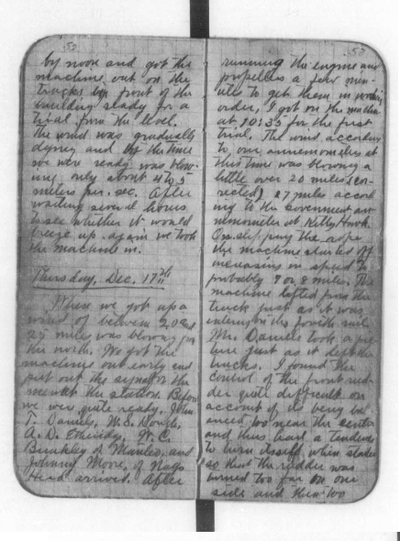 by noon and got the
machine out on the
tracks in front of the
building ready for a
trial from the level.
The wind was gradually
dying and by the time
we were ready was blow-
ing only about 4 to 5
meters per. sec. After
waiting several hours
to see whether it would
breeze up again we took
the machine in.
Thursday, Dec. 17th
When we got up a
wind of between 20 and
25 miles was blowing from
the north. We got the
machine out early and
put out the signal for the
men at the station. Before
we were quite ready, John
T. Daniels, W. S. Dough,
A. D. Etheridge, W. C.
Brinkley of Manteo, and
Johnny Moore, of Nags
Head arrived. After
running the engine and
propellers a few min-
utes to get them in working
order, I got on the machine
at 10:35 for the first
trial. The wind according
to our anemometers at
this time was blowing a
little over 20 miles (cor-
rected) 27 miles accord
ing to the Government an-
emometer at Kitty Hawk.
On slipping the rope
the machine started off
increasing in speed to
probably 7 or 8 miles. The
machine lifted from the
truck just as it was
entering on the fourth rail.
Mr. Daniels took a pic-
ture just as it left the
tracks. I found the
control of the front rud-
der quite difficult on
account of its being bal-
anced too near the center
and thus had a tendency
to turn itself when started
so that the rudder was
turned too far on one
side and then too